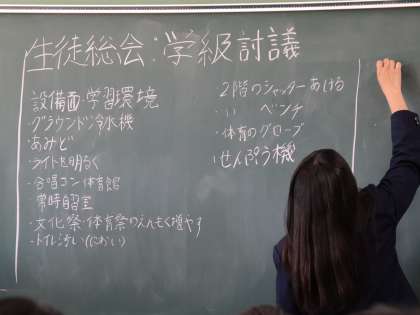 生徒総会：学級討議
設備面・学習環境
・グラウンド冷水機
・あみど
・ライトを明るく
・合唱コン体育館
常時自習室
・文化祭・体育祭のえんもく増やす
・トイレ汚い(におい)
2階のシャッターあける
〃 ベンチ
・体育のグローブ
・せんぷう機